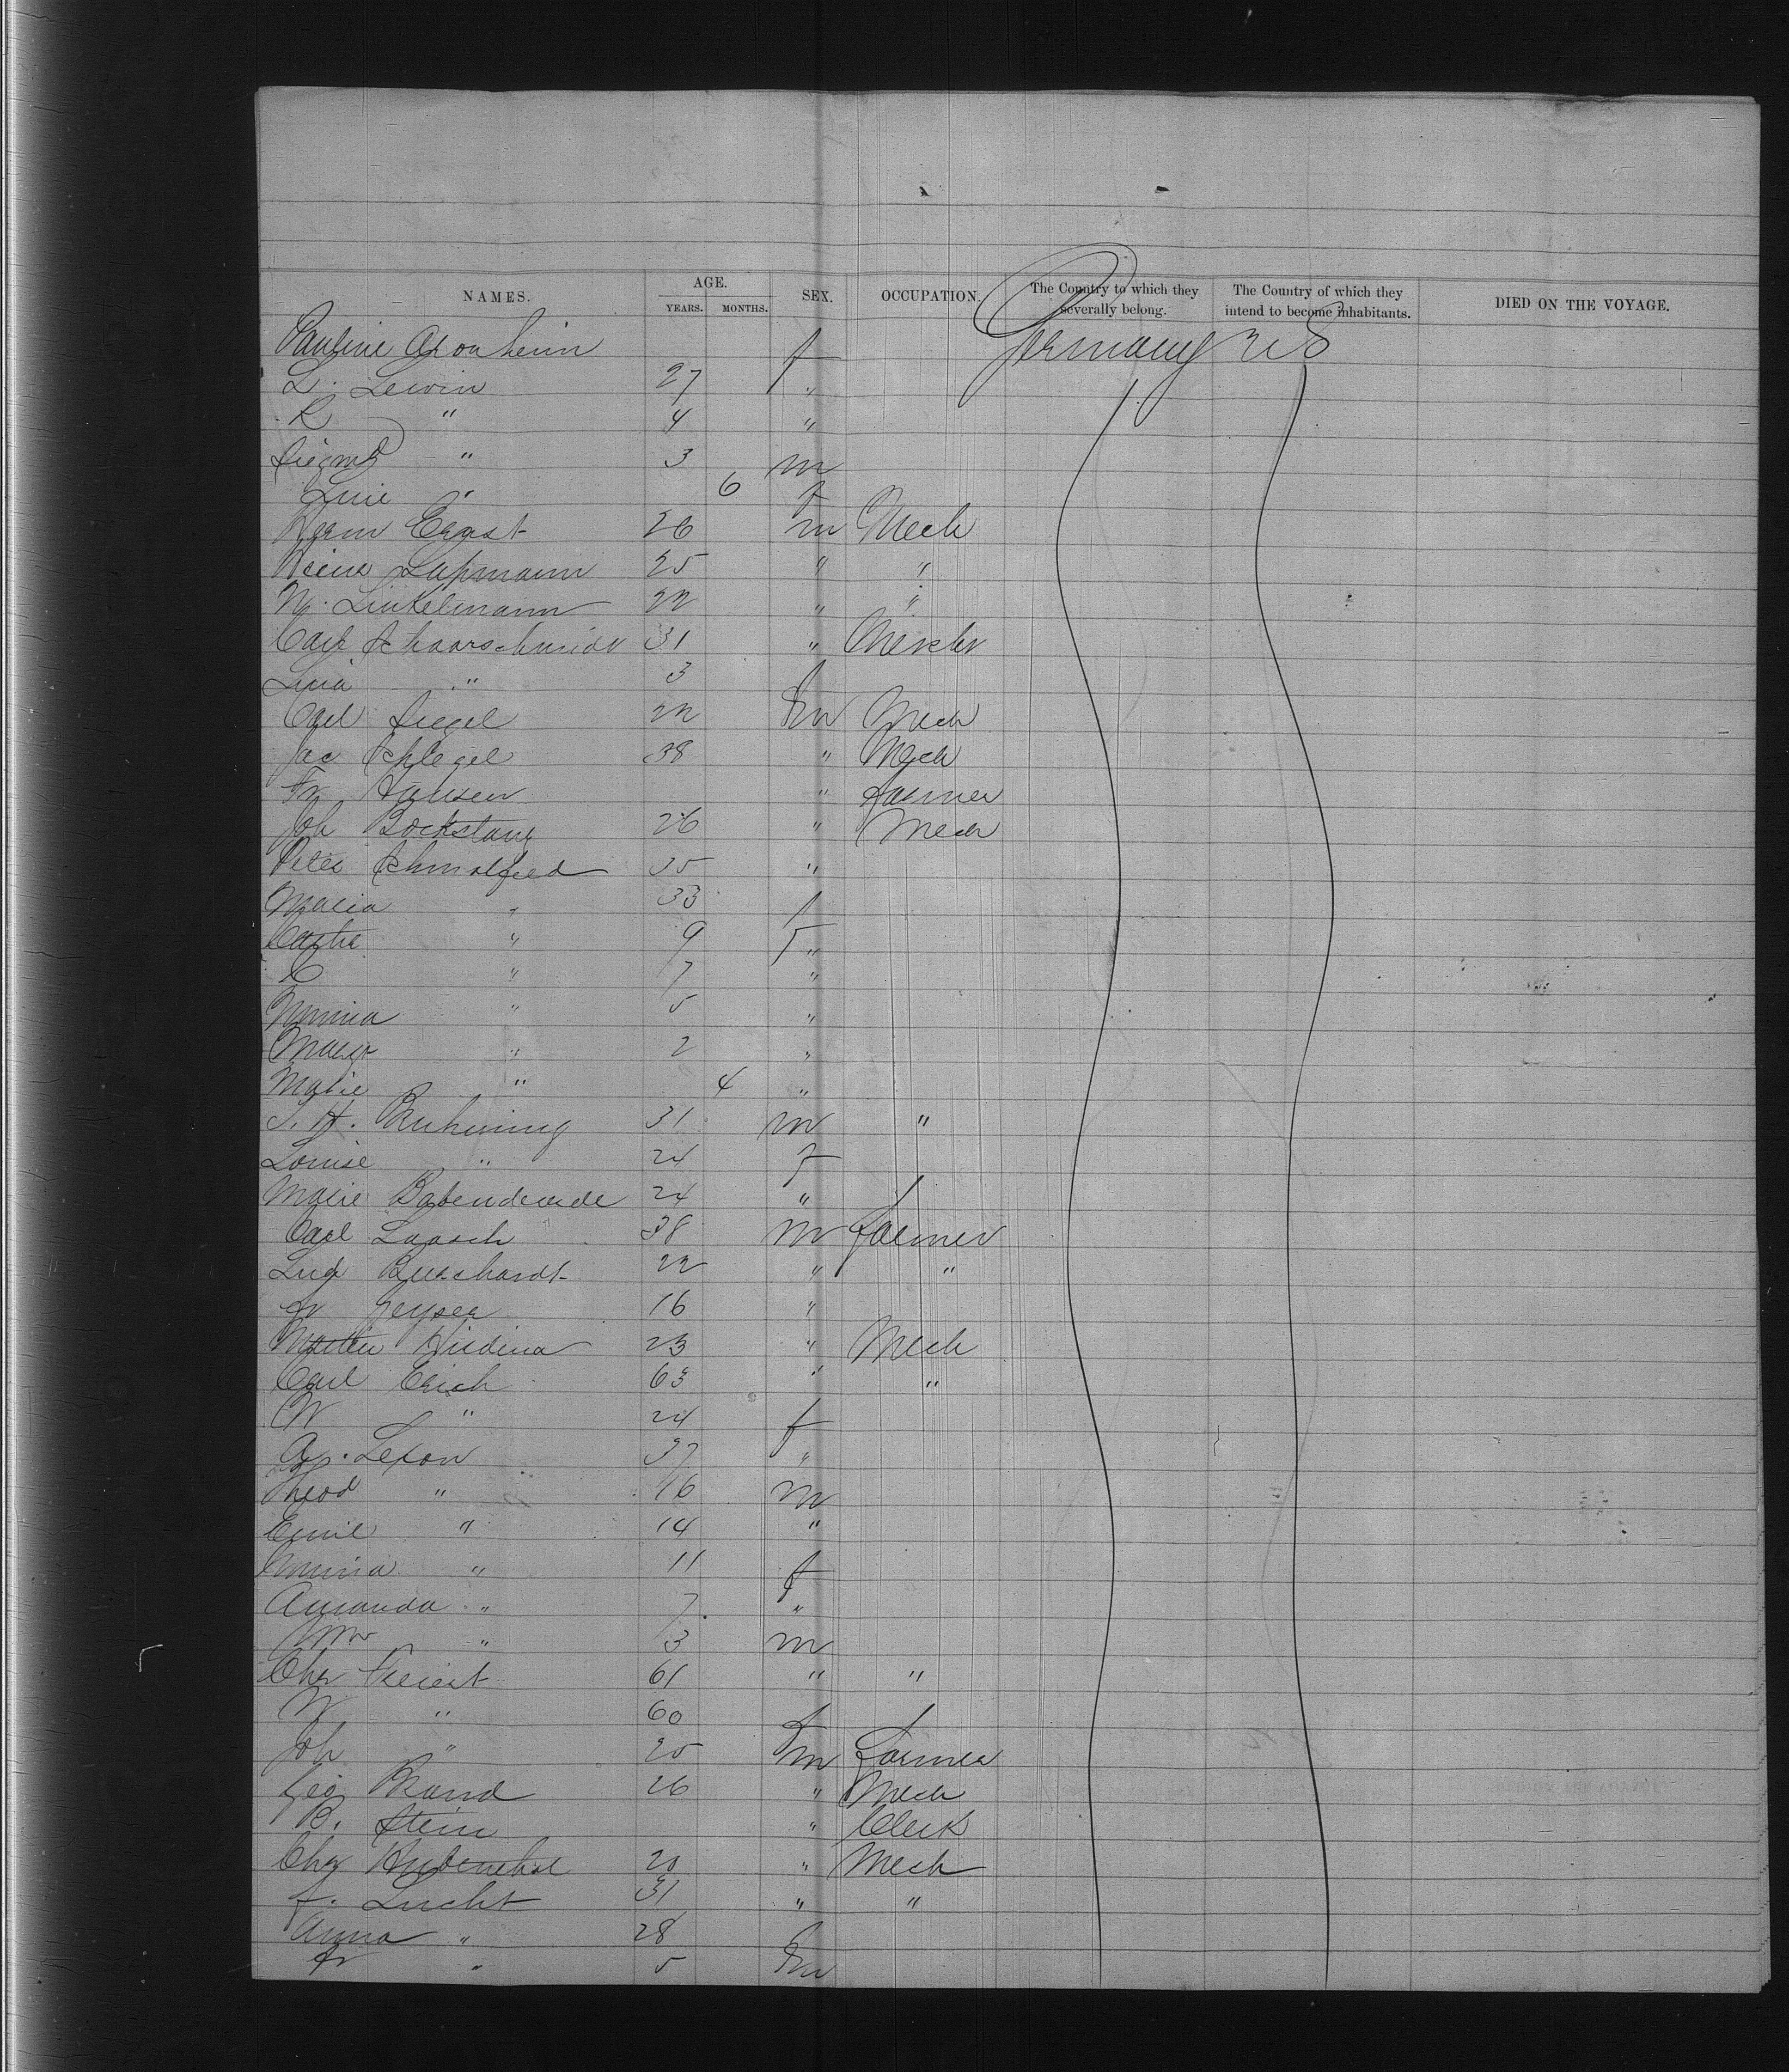 NAMES. AGE. YEARS. MONTHS. SEX. OCCUPATION. The Country to which they severally belong. The Country of which they intend to become inhabitants. DIED ON THE VOYAGE.
Pauline Aronheim f Germany U S
L. Lewin 27 "
R " 4 "
Siegmd " 3 m
Line " 6 f
Herm Ernst 26 m Mech
Heinr Lapmann 25 " "
W. Linkelmann 22 " "
Carl Schaarschmidt 31 " Merchr
Lina " 3 f
Carl Siegel 22 m Mech
Jac Schlegel 38 " Mech
Fr Hansen " Farmer
Joh Bockstang 26 " Mech
Peter Schmalfeld 35 "
Maria " 33 f
Cathe " 9 f "
C " 7 "
Minna " 5 "
Margr " 2 "
Marie " 4 "
J. H. Bruhning 31 m "
Louise " 24 f
Marie Babenderde 24 "
Carl Laasch 38 m Farmer
Ludg Burchardt 22 " "
Fr Geyser 16 "
Martin Hirdina 23 " Mech
Carl Erich 63 " "
W " 24 f
Aug. Lexow 37 "
Theod " 16 m
Emil " 14 "
Minna " 11 f
Amanda " 7 "
Wm " 3 m
Chr 61 " "
W " 60 f
Joh " 25 m Farmer
Geo Brand 26 " Mech
B. Stein " Clerk
Chr 20 " Mech
F. Lucht 31 " "
Anna " 28 f
Fr " 5 m